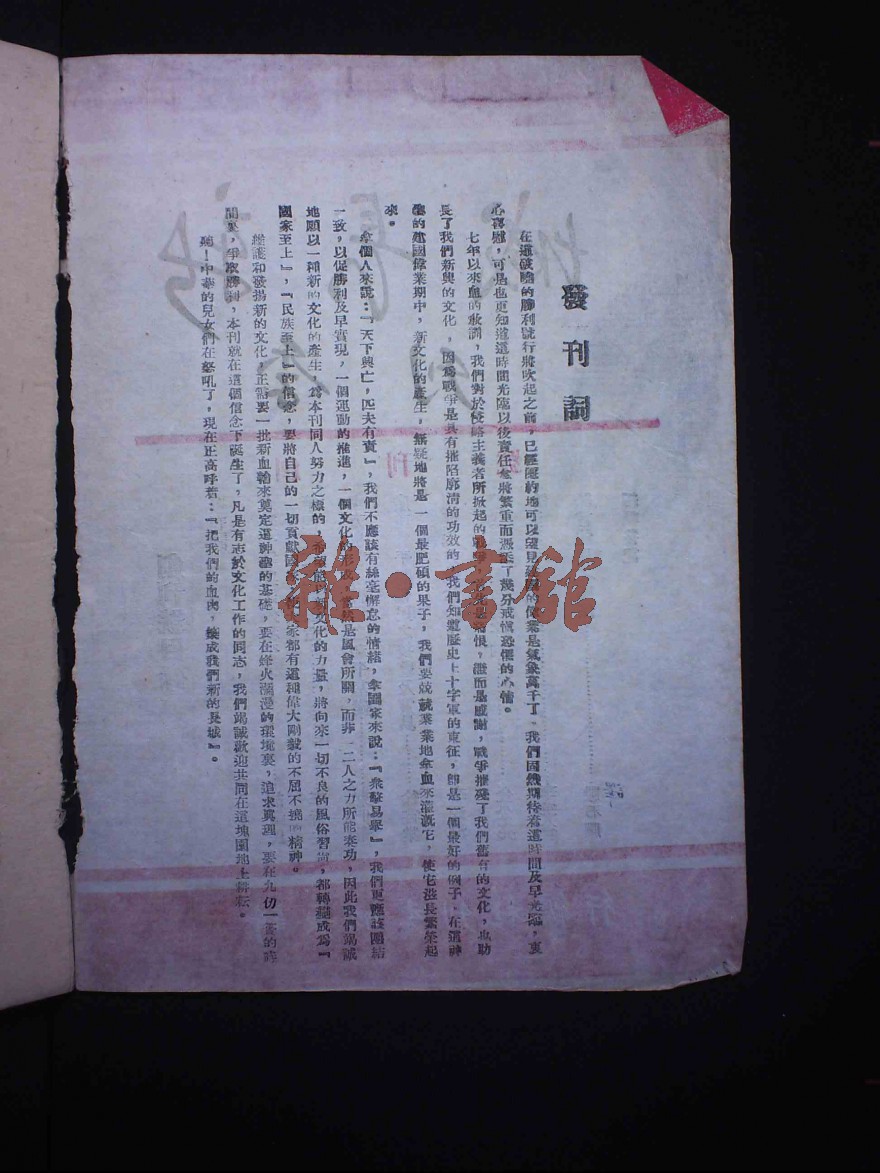 發刊詞
在這破曉的勝利號行將吹起之前，已經隱約地可以望見建國的偉業是氣象萬千了。我們固然期待着這時間及早光臨，衷
心喜慰，可是也更知道這時間光臨以後責任愈將繁重而憑添了幾分戒慎恐懼的心情。
七年以來血的敎訓，我們對於侵略主義者所掀起的戰爭，是憤恨，進而是感謝，戰爭摧殘了我們舊有的文化，也助
長了我們新興的文化，因爲戰爭是具有摧陷廓清的功效的，我們知道歷史上十字軍的東征，卽是一個最好的例子。在這神
聖的建國偉業期中，新文化的產生，無疑地將是一個最肥碩的果子，我們要兢兢業業地拿血來灌漑它，使它滋長繁榮起
來。
拿個人來說：『天下興亡，匹夫有責』，我們不應該有絲毫懈怠的情緒，拿國家來說：『衆擎易舉』，我們更應該團結
一致，以促勝利及早實現，一個運動的推進，一個文化的形成，當然是風會所關，而非一二人之力所能奏功，因此我們竭誠
地願以一種新的文化的產生，爲本刊同人努力之標的，文化的力量，將向來一切不良的風俗習尚，都轉變成爲『
國家至上』，『民族至上』的信念，要將自己的一切貢獻國家，使大家都有這種偉大剛毅的不屈不撓的精神。
維護和發揚新的文化，正需要一批新血輪來奠定這神聖的基礎，要在烽火瀰漫的環境裏，追求眞理，要在九仞一簣的時
間裏，爭取勝利，本刊就在這個信念下誕生了，凡是有志於文化工作的同志，我們竭誠歡迎共同在這塊園地上耕耘。
聽！中華的兒女們在怒吼了，現在正高呼着：『把我們的血肉，築成我們新的長城』。
雜·書館